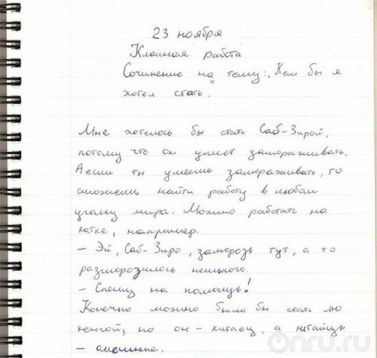 23 ноября
Классная работа
Сочинение на тему: „Кем бы я
хотел стать.
Мне хотелось бы стать Саб-Зирой,
потому что он умеет замораживать.
А если ты умеешь замораживать, то
сможешь найти работу в любом
уголку мира. Можно работать на
катке, например.
– Эй, Саб-Зиро, заморозь тут, а то
разморозилось немного.
– Спешу на помощь!
Конечно можно было бы стать лю
кенгой, но он – китаец, а китайцы
– смешные.
Onru.ru